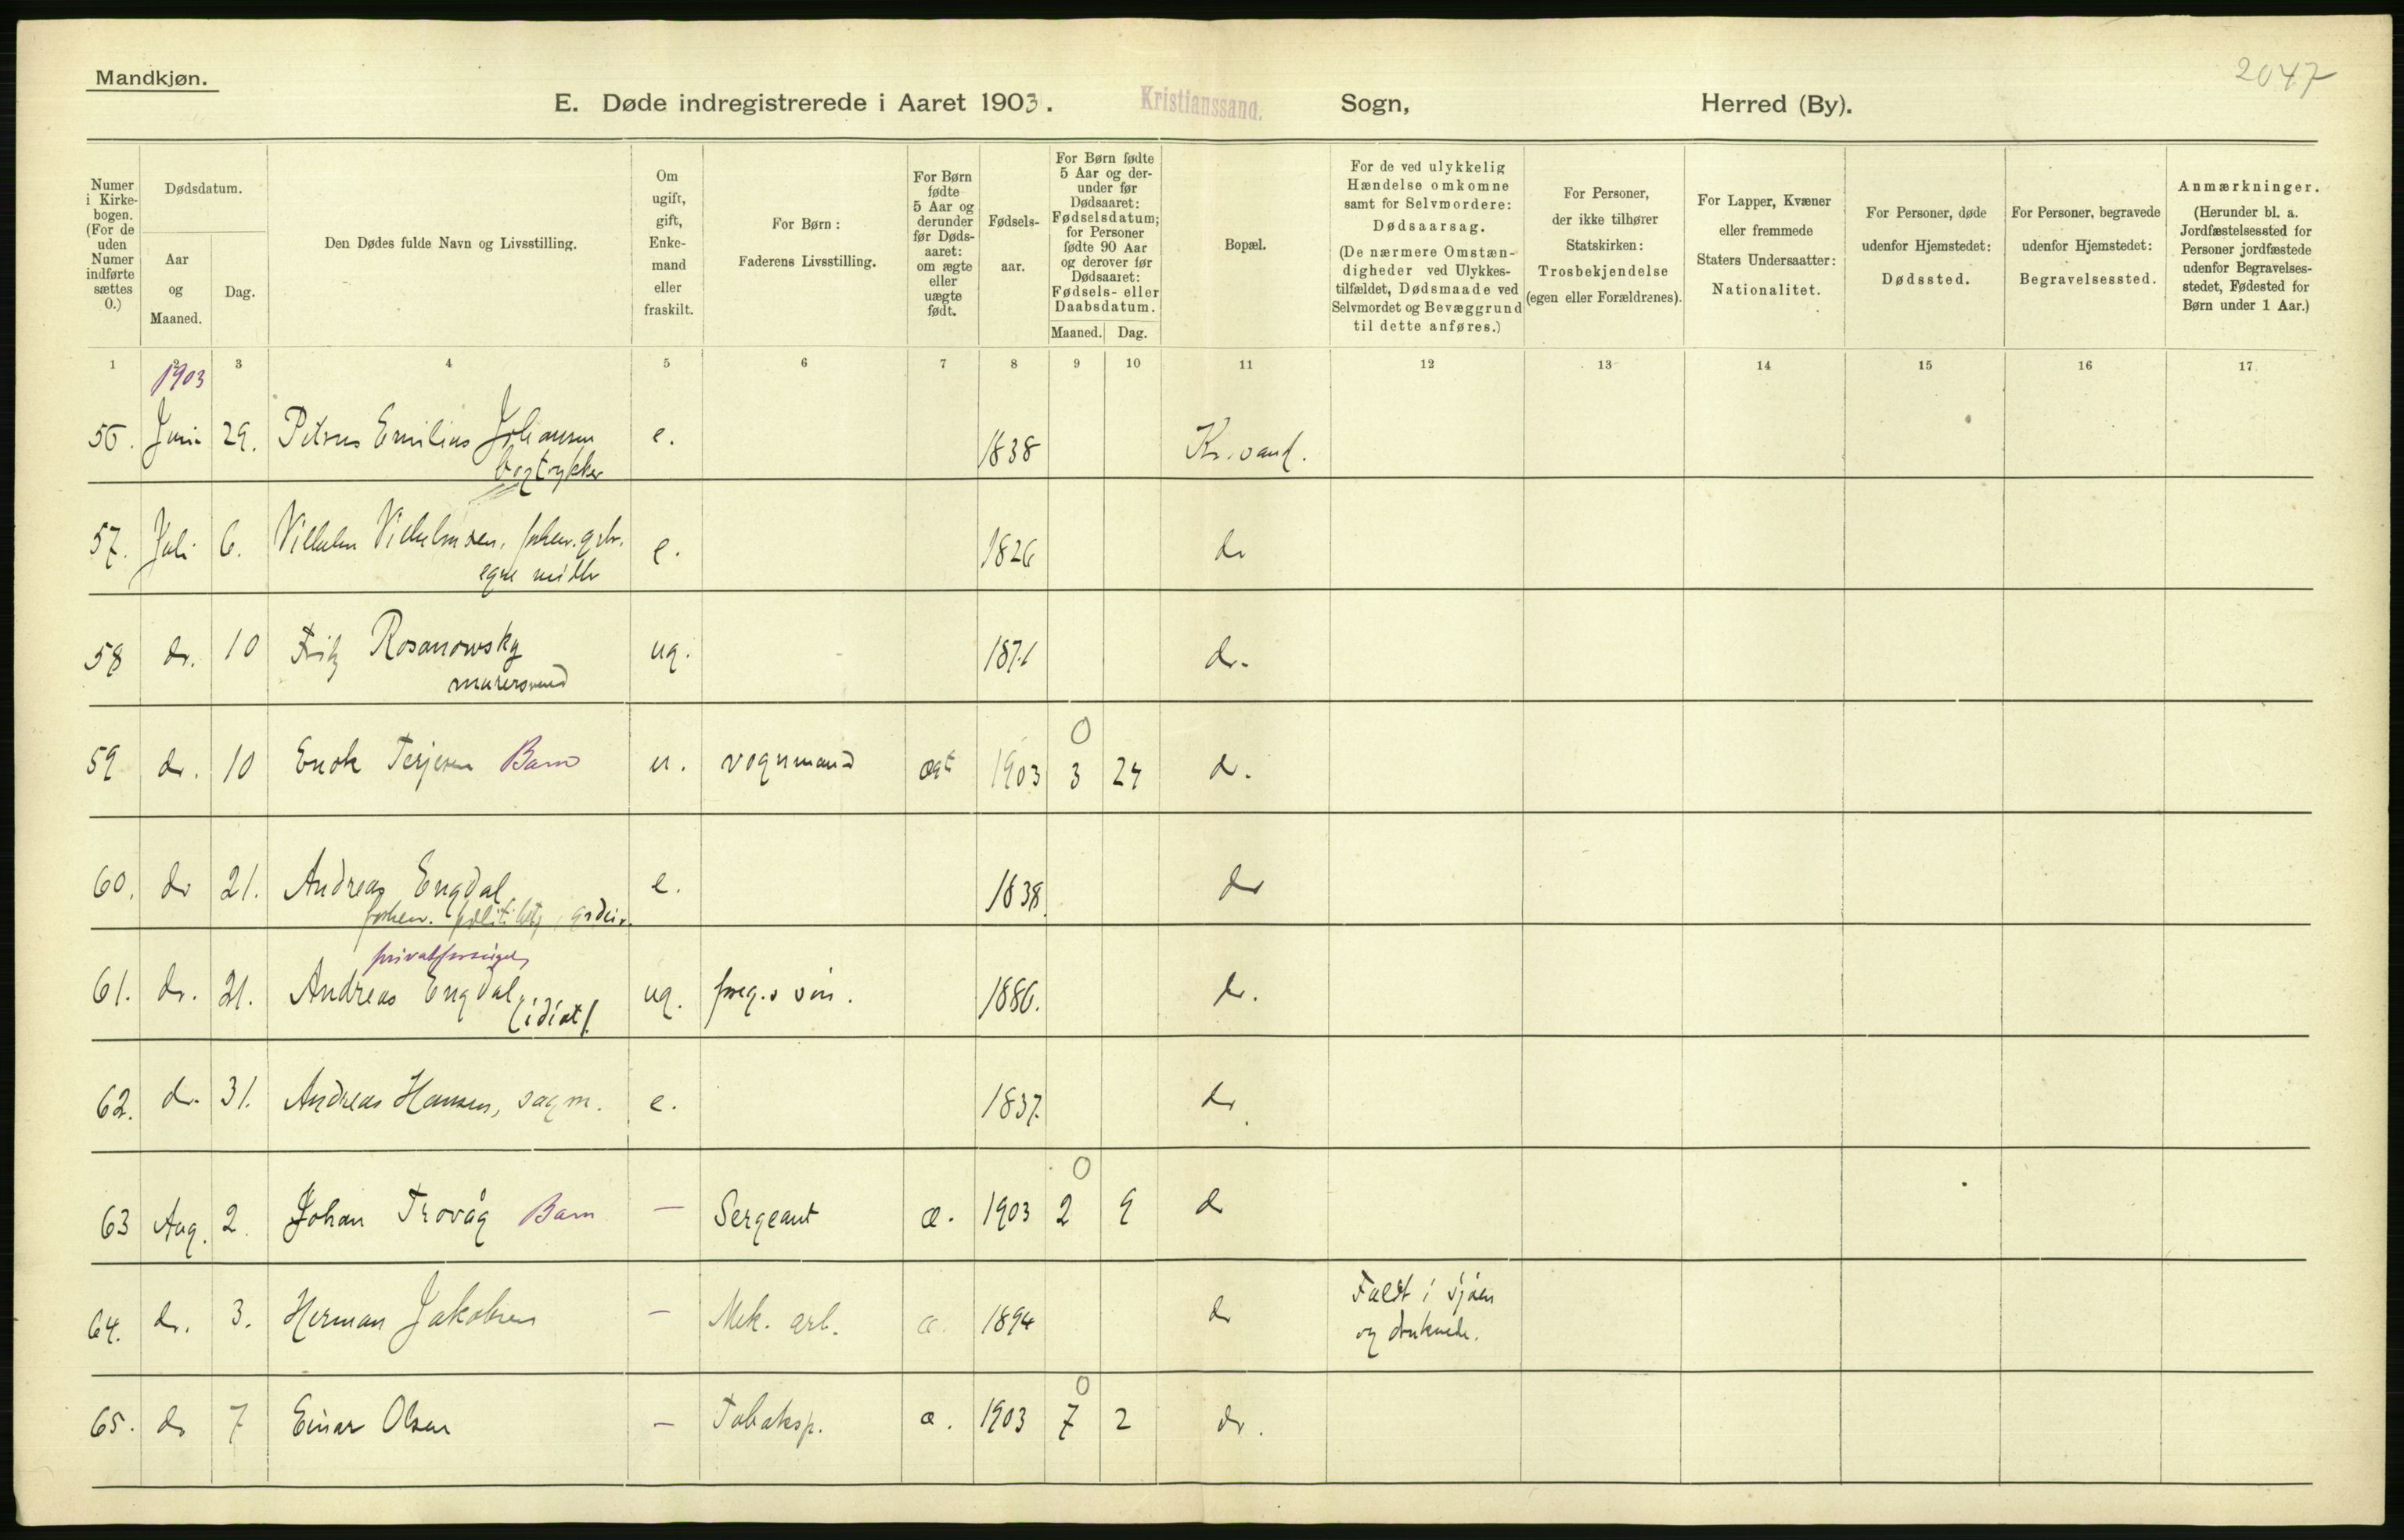 Mandkjøn.
2047
E. Døde indregistrerede i Aaret 1903. Kristianssand. Sogn, Herred (By).
Numer i Kirkebogen. (For de uden Numer indførte sættes 0.)
Dødsdatum.
Aar og Maaned.
Dag.
Den Dødes fulde Navn og Livsstilling.
Om ugift, gift, Enkemand eller fraskilt.
For Børn: Faderens Livsstilling.
For Børn fødte 5 Aar og derunder før Dødsaaret: om ægte eller uægte født.
Fødselsaar.
For Børn fødte 5 Aar og derunder før Dødsaaret: Fødselsdatum; for Personer fødte 90 Aar og derover før Dødsaaret: Fødsels- eller Daabsdatum.
Maaned. Dag.
Bopæl.
For de ved ulykkelig Hændelse omkomne samt for Selvmordere: Dødsaarsag. (De nærmere Omstændigheder ved Ulykkestilfældet, Dødsmaade ved Selvmordet og Bevæggrund til dette anføres.)
For Personer, der ikke tilhører Statskirken: Trosbekjendelse (egen eller Forældrenes).
For Lapper, Kvæner eller fremmede Staters Undersaatter: Nationalitet.
For Personer, døde udenfor Hjemstedet: Dødssted.
For Personer, begravede udenfor Hjemstedet: Begravelsessted.
Anmærkninger. (Herunder bl. a. Jordfæstelsessted for Personer jordfæstede udenfor Begravelsesstedet, Fødested for Børn under 1 Aar.)
1 2 3 4 5 6 7 8 9 10 11 12 13 14 15 16 17
1903
56. Juni 29. Petrus Emilius Johansen e. 1838 Kr.sand.
bogtrykker
57. Juli 6. Vilhelm Vilhelmsen, forhen. e. 1826 do
egne midler
58 do. 10 Fritz Rosanowsky ug. 1871 do.
murersvend
0
59 do. 10 Enok Terjesen Barn u. vognmand ægt 1903 3 24 do.
60. do 21. Andreas Engdal e. 1838. do
forhen. politibetj.
privatforsørget
61. do. 21. Andreas Engdal, ug. foreg.s søn. 1886. do.
(idiot).
62. do. 31. Andreas Hansen, sagm. e. 1837. do.
0
63 Aug. 2. Johan Trovåg Barn — Sergeant æ. 1903 2 9 do
64. do. 3. Herman Jakobsen — Mek. arb. æ. 1894 do Faldt i sjøen
og druknede.
0
65. do 7 Einar Olsen — Tobaksp. æ. 1903 7 2 do.